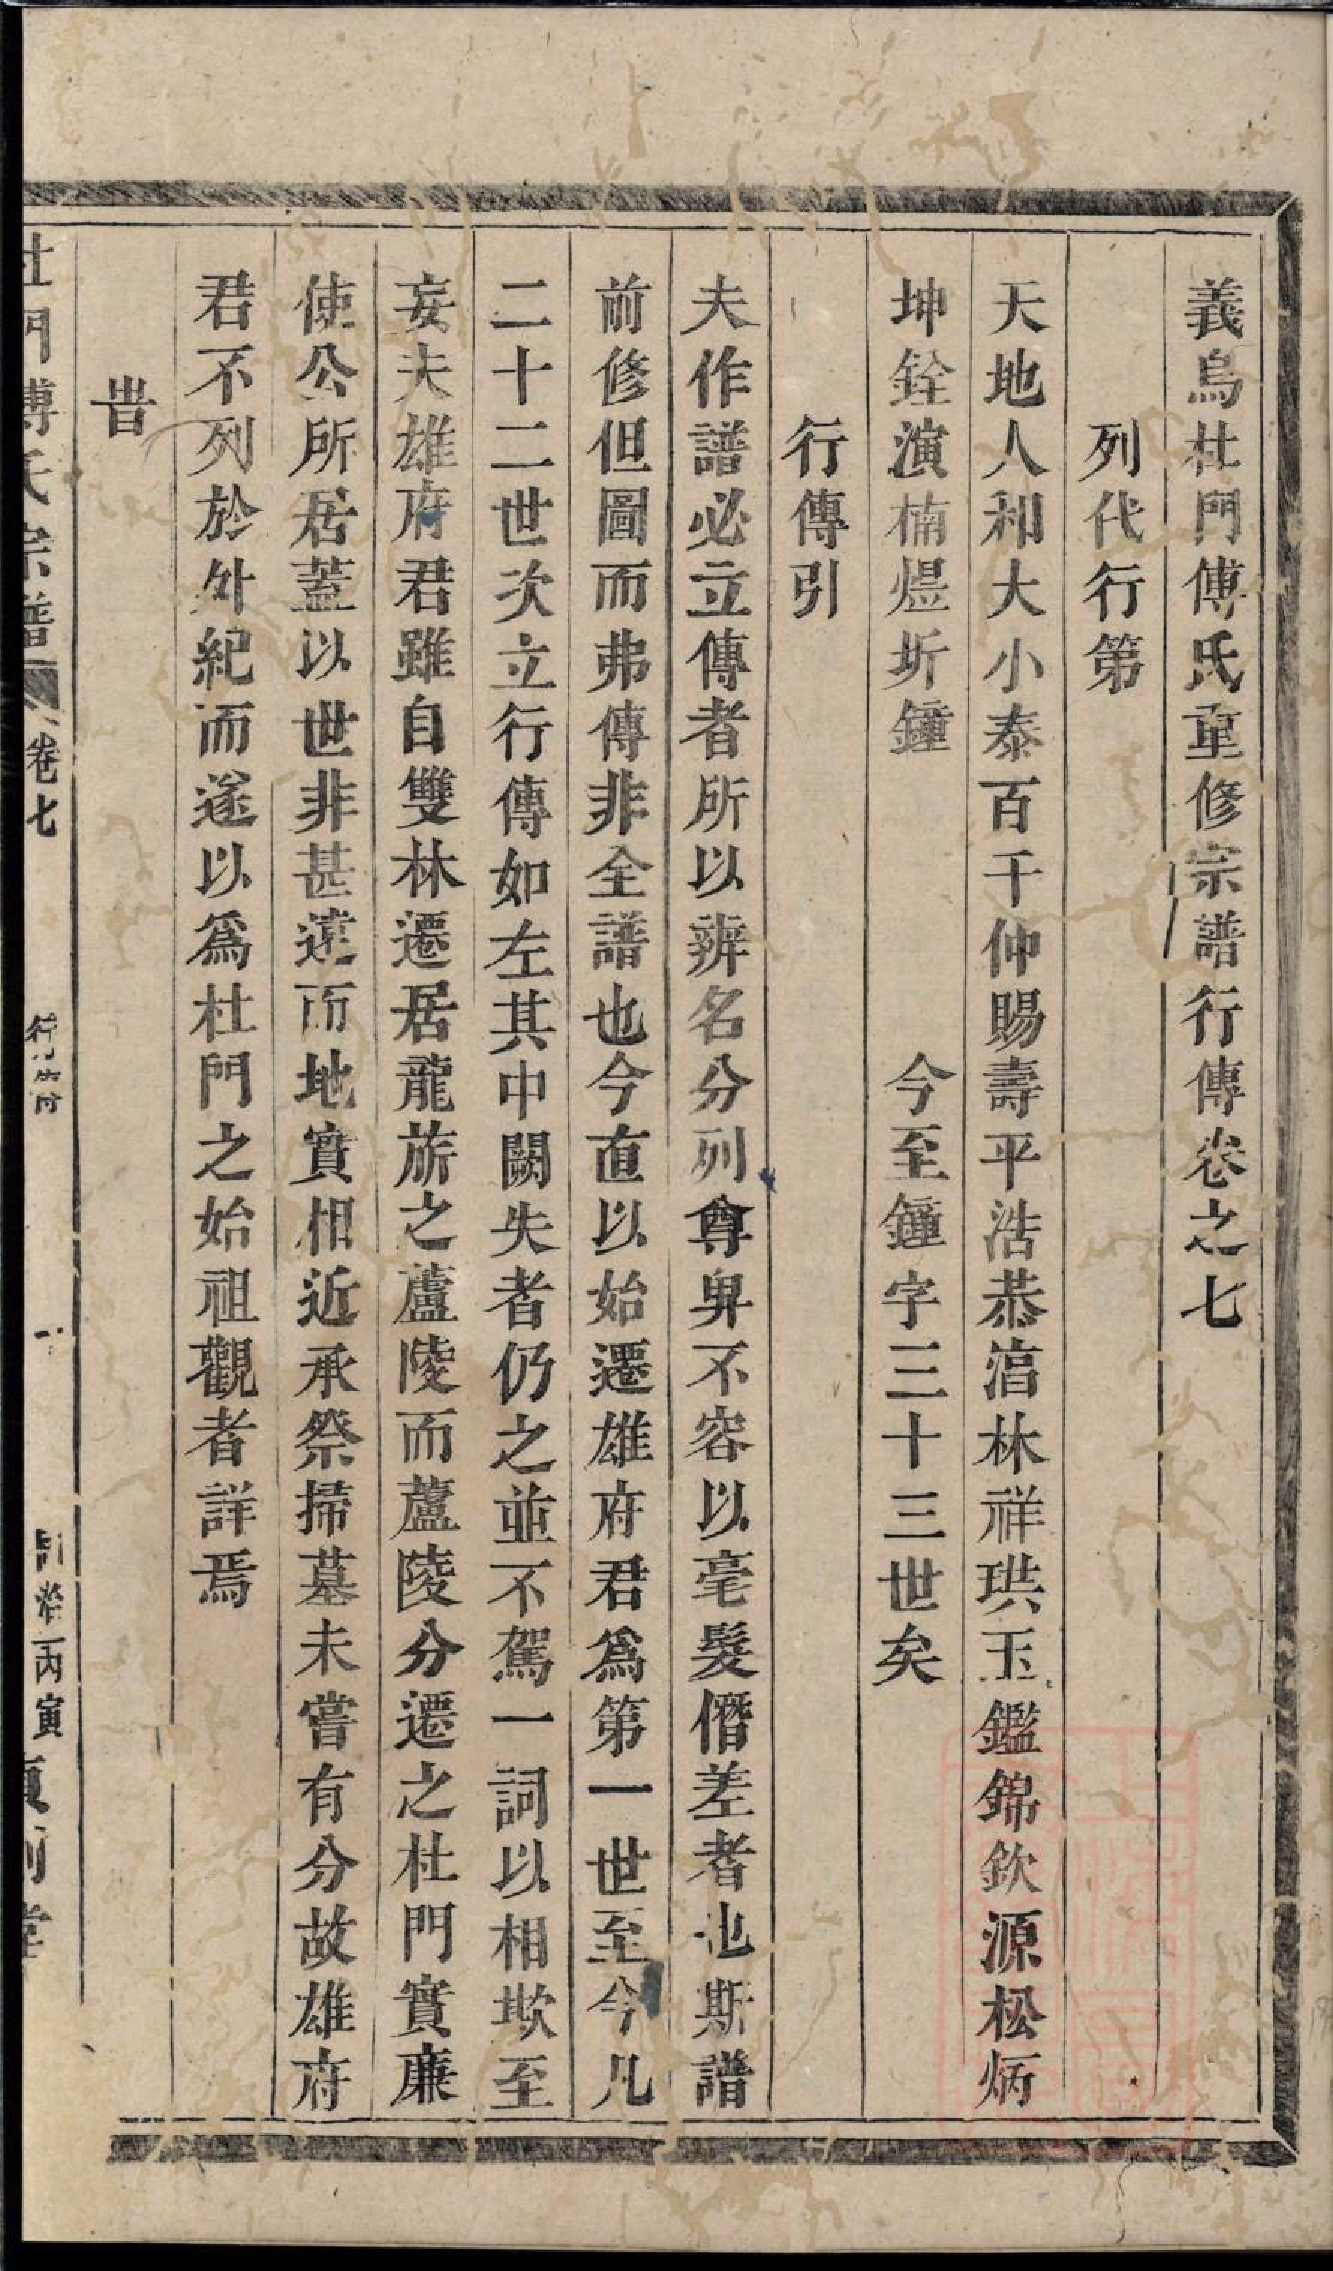 義烏杜門傅氏重修宗譜行傳卷之七
列代行第
天地人和大小泰百千仲賜壽平浩恭湻林祥珙玉鑑錦欽源松炳
坤銓演楠煜圻鐘 今至鐘字三十三世矣
行傳引
夫作譜必立傳者所以辨名分列尊卑不容以毫髮僭差者也斯譜
前修但圖而弗傳非全譜也今直以始遷雄府君爲第一世至今凡
二十二世次立行傳如左其中闕失者仍之並不駕一詞以相欺至
妄夫雄府君雖自雙林遷居龍旂之蘆陵而蘆陵分遷之杜門實廉
使公所居蓋以世非甚遠而地實相近承祭掃墓未嘗有分故雄府
君不列於外紀而遂以爲杜門之始祖觀者詳焉
旹
杜門傅氏宗譜 卷七 行第 一 丙寅